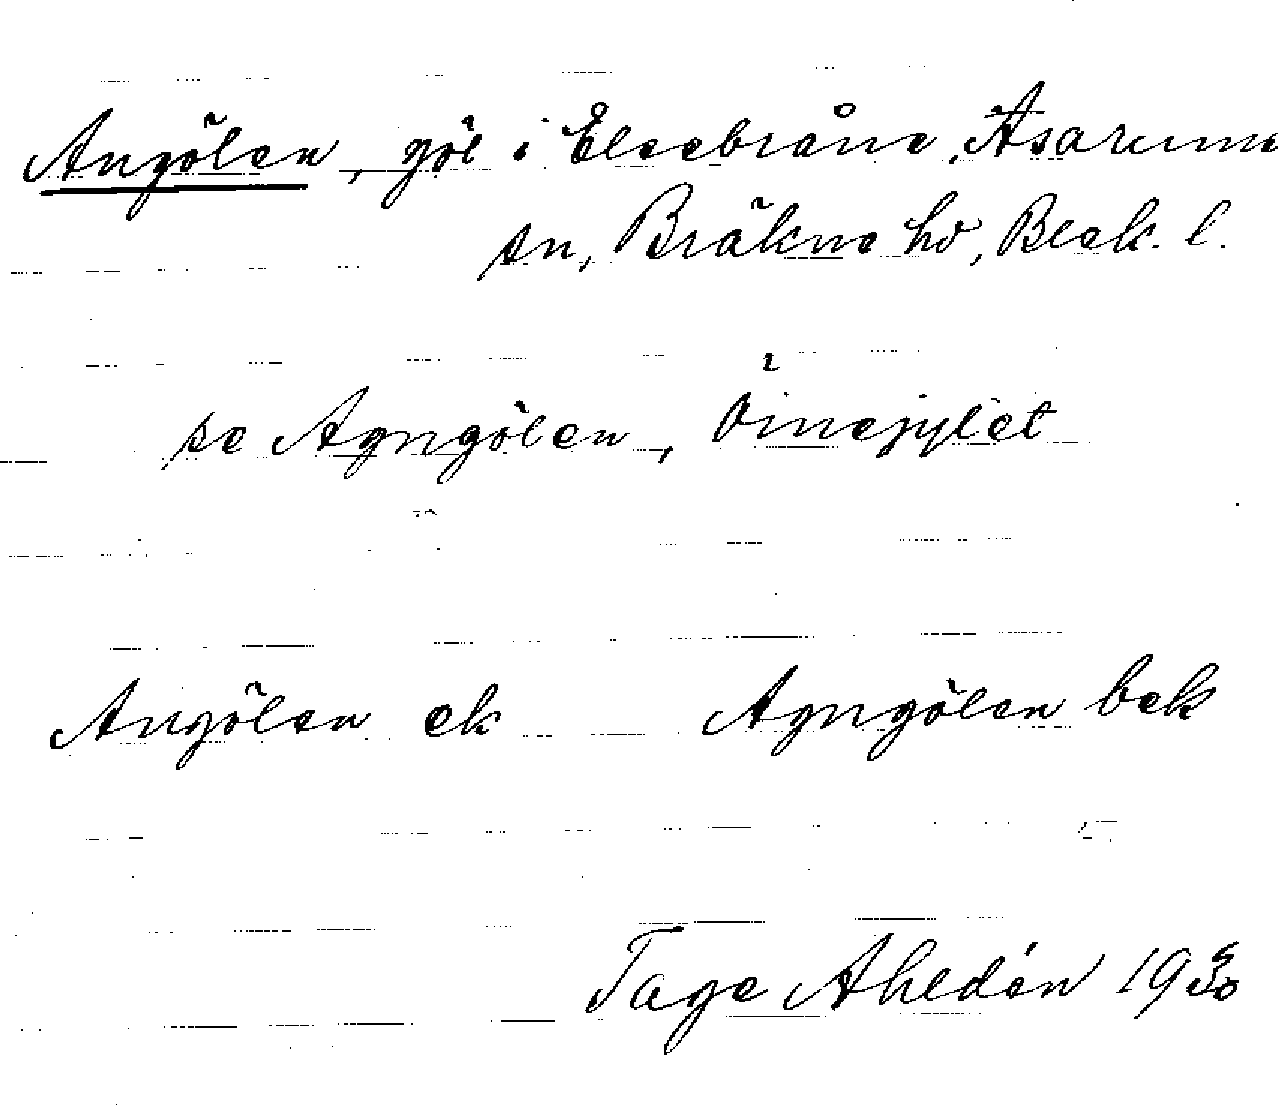 Angölen, göl i Elsebråne, Asarums
sn, Bräkne hd, Blek. l.
se Agngölen, Vinejylet
Angölen ek Agngölen bek
Tage Ahldén 1930